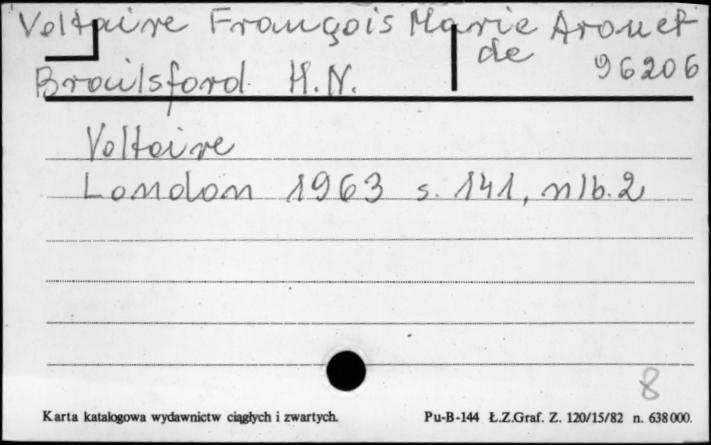 Voltaire François Marie Arouet
de 96206
Brailsford H.N.
Voltaire
London 1963 s. 141, nlb. 2
8
Karta katalogowa wydawnictw ciągłych i zwartych.
Pu-B-144 Ł.Z.Graf. Z. 120/15/82 n. 638000.